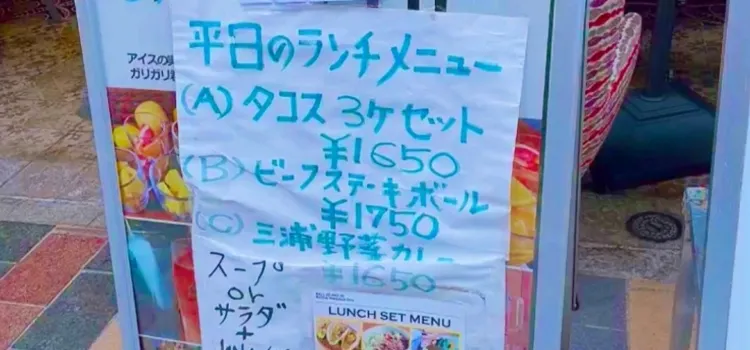 アイスの
ガリガリ
平日のランチメニュー
(A) タコス 3ケセット
¥1650
(B) ビーフステーキボール
¥1750
(C) 三浦野菜カレー
¥1650
スープ
or
サラダ
+
LUNCH SET MENU